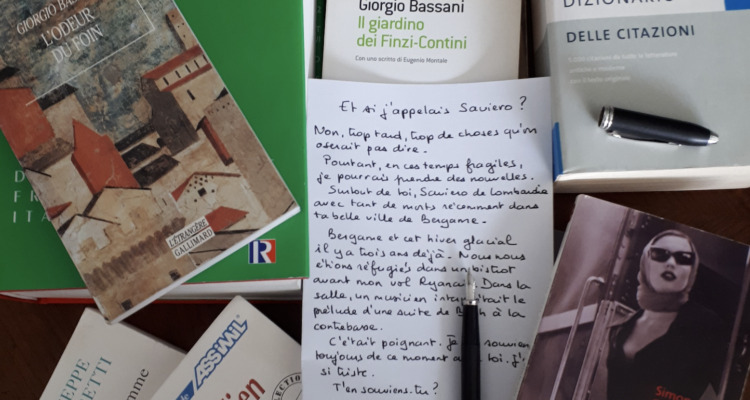 GIORGIO BAS
L'ODEUR
DU FOIN
L'ÉTRANGÈRE
GALLIMARD
D
F R
I T A
R
Giorgio Bassani
Il giardino
dei Finzi-Contini
Con uno scritto di Eugenio Montale
DIZIONARIO
DELLE CITAZIONI
Et si j'appelais Saviero ?
Non, trop tard, trop de choses qu'on
oserait pas dire.
Pourtant, en ces temps fragiles,
je pourrais prendre des nouvelles.
Surtout de toi, Saviero de Lombardie
avec tant de morts récemment dans
ta belle ville de Bergame.
Bergame et cet hiver glacial
il y a trois ans déjà. Nous nous
étions réfugiés dans un bistrot
avant mon vol Ryanair. Dans la
salle, un musicien la
prélude d'une suite de à la
contrebasse.
C'était poignant. Je
toujours de ce moment toi. J'
si triste.
T'en souviens-tu ?
EPPE
ETTI
omme
ASSiMiL
ien
COLLECTION
Simo